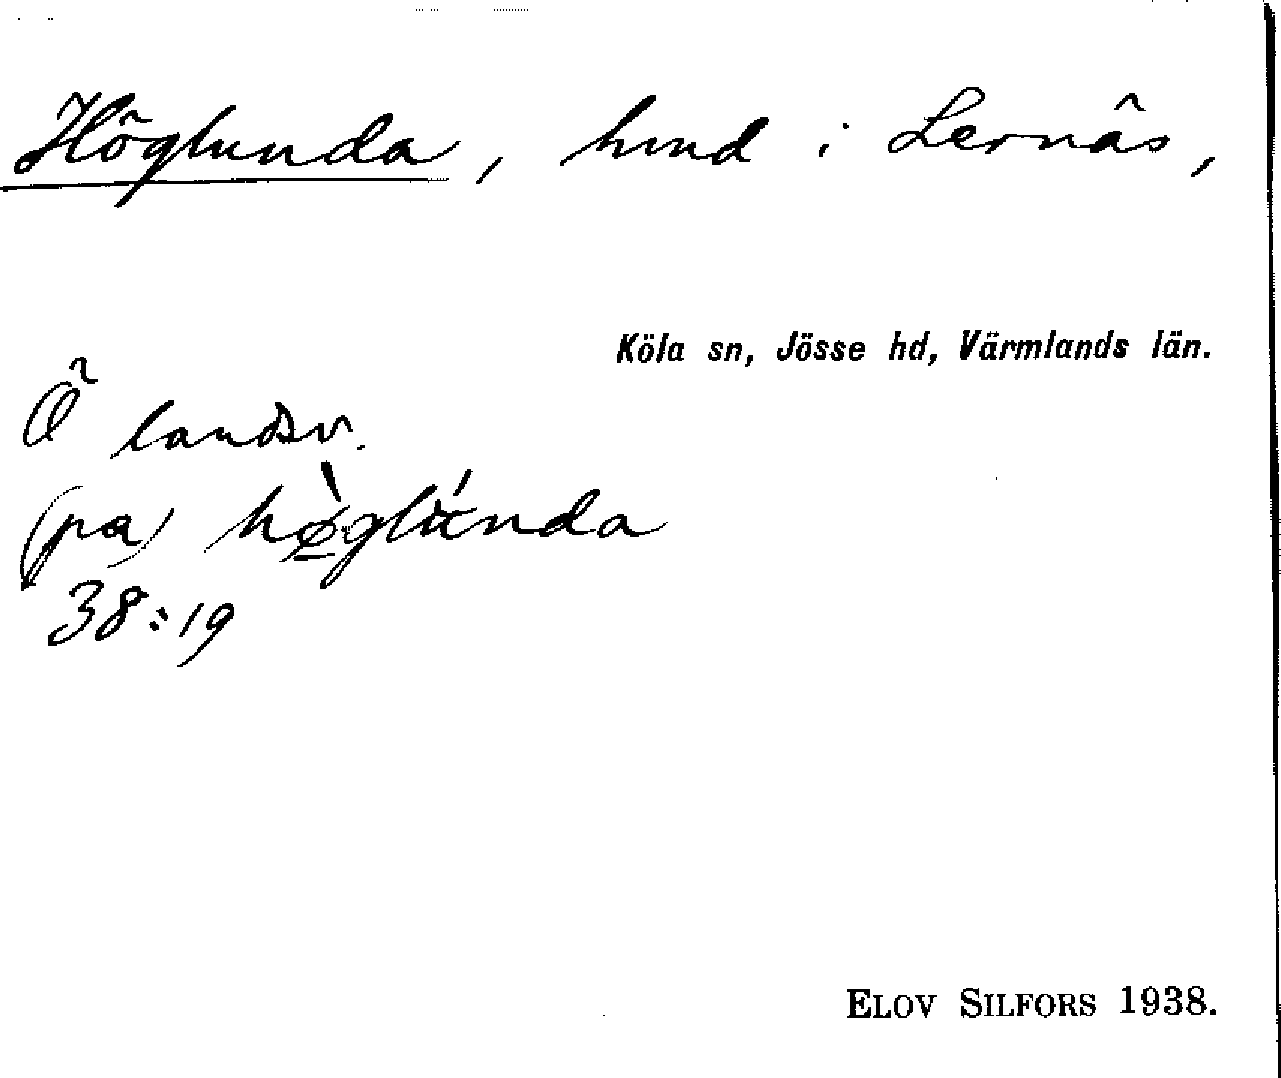 Höglunda, hmd i Lernäs,
Köla sn, Jösse hd, Värmlands län.
Ö landsv.
(pa) hø̀glúnda
38:19
ELOV SILFORS 1938.